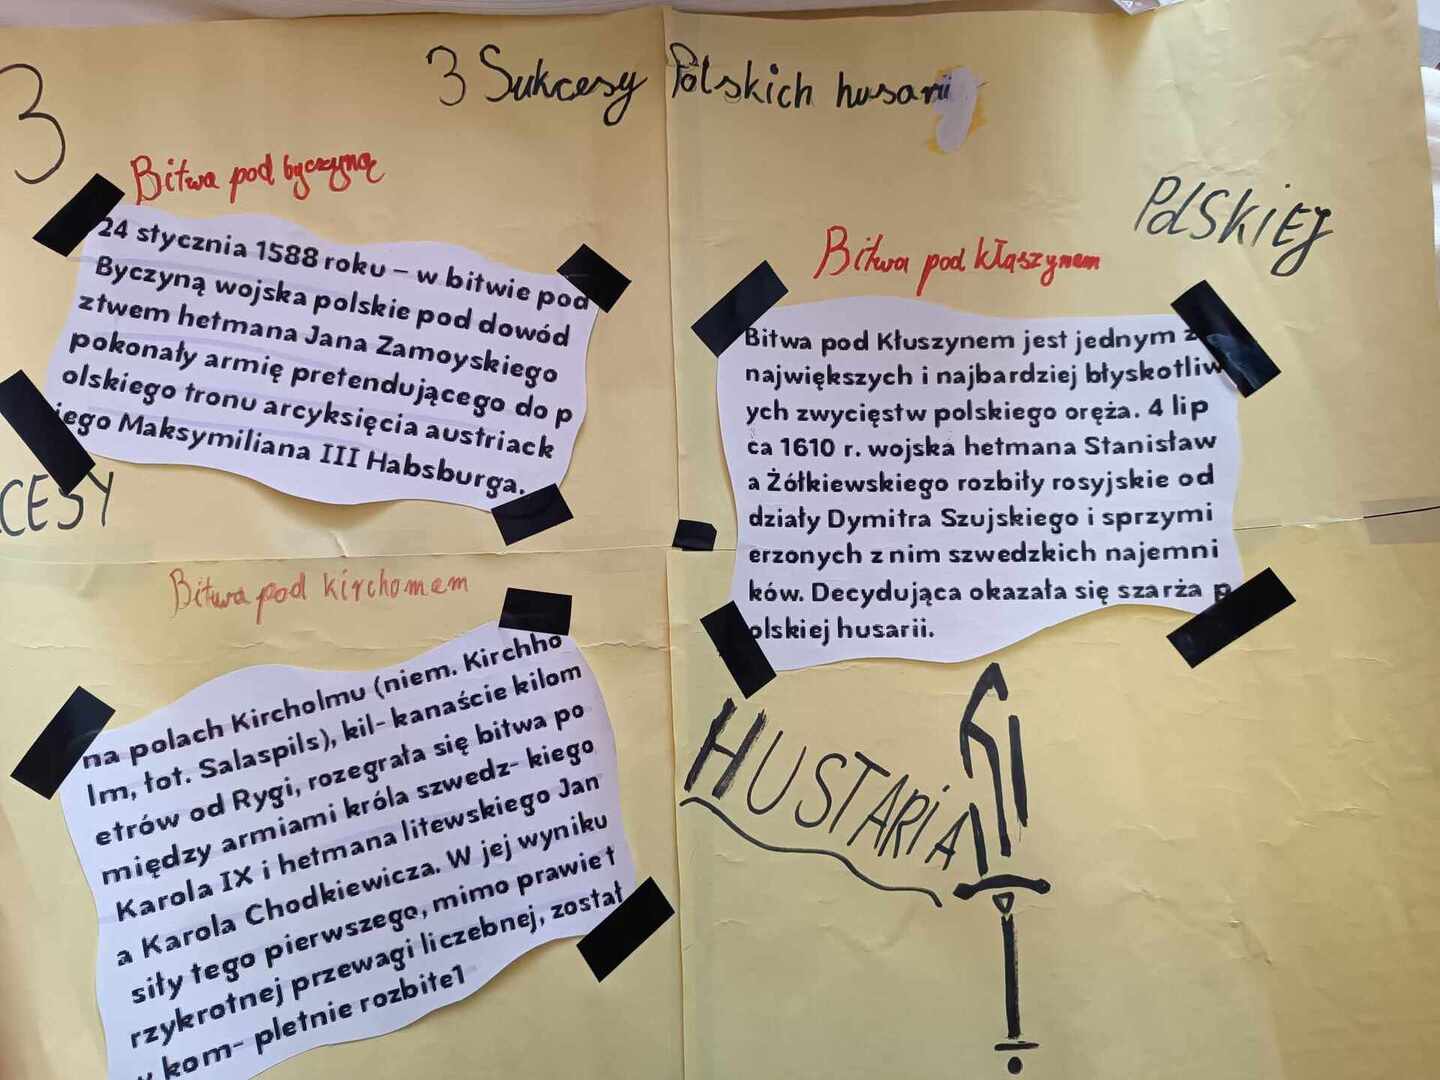 3
3 Sukcesy Polskich husarii
POLSKIEJ
Bitwa pod byczyną
24 stycznia 1588 roku – w bitwie pod
Byczyną wojska polskie pod dowód
ztwem hetmana Jana Zamoyskiego
pokonały armię pretendującego do p
olskiego tronu arcyksięcia austriack
iego Maksymiliana III Habsburga.
CESY
Bitwa pod kłąszynem
Bitwa pod Kłuszynem jest jednym z
największych i najbardziej błyskotliw
ych zwycięstw polskiego oręża. 4 lip
ca 1610 r. wojska hetmana Stanisław
a Żółkiewskiego rozbiły rosyjskie od
działy Dymitra Szujskiego i sprzymi
erzonych z nim szwedzkich najemni
ków. Decydująca okazała się szarża p
olskiej husarii.
Bitwa pod kirchomem
na polach Kircholmu (niem. Kirchho
lm, łot. Salaspils), kil- kanaście kilom
etrów od Rygi, rozegrała się bitwa po
między armiami króla szwedz- kiego
Karola IX i hetmana litewskiego Jan
a Karola Chodkiewicza. W jej wyniku
siły tego pierwszego, mimo prawie t
rzykrotnej przewagi liczebnej, został
y kom- pletnie rozbite1
HUSTARIA